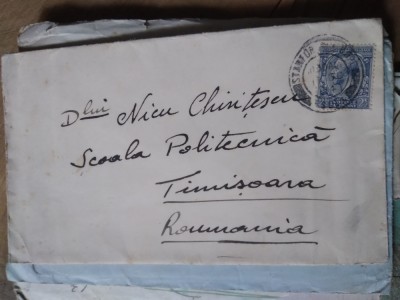 Dlui Nicu Chirițescu
Scoala Politecnică
Timișoara
Roumania